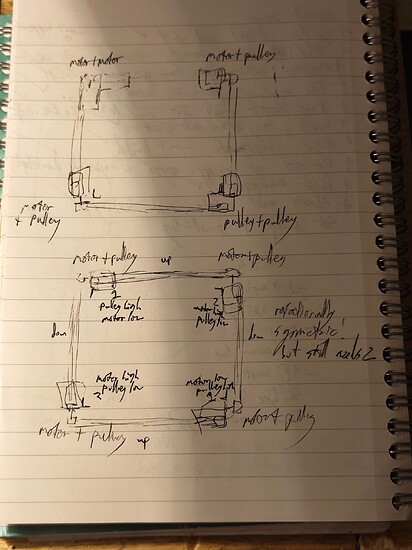 motor + motor
motor + pulley
L
motor
+ pulley
pulley + pulley
motor + pulley
up
motor + pulley
1
2
pulley high
motor low
motor
pulley low
low
low
rotationally
symmetric,
but still needs 2
motor high
pulley low
2
motor low
pulley high
motor + pulley
up
motor + pulley